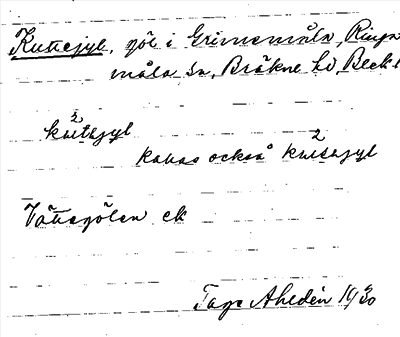 Kuttejyl, göl i Grimsmåla, Ringa
måla sn, Bräkne hd, Blek.
2
kutejyl
2
kallas också kutejyl
Vättagölen ek
Tage Ahldén 1930